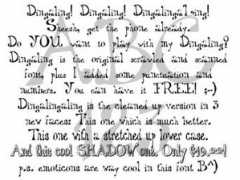 Dingaling! Dingaling! Dingalinga'l;ing!
Sheesh, get the phone already.
Do YOU want to play with my Dingaling?
Dingaling is the original scrawled and scanned
font, plus I added some punctuation and
numbers. You can have it FREE! :-)
Dingalingaling is the cleaned up version in 3
new faces: This one which is much better.
This one with a stretched up lower case.
And this cool SHADOW one. Only $19.99!
p.s. emoticons are way cool in this font B^)